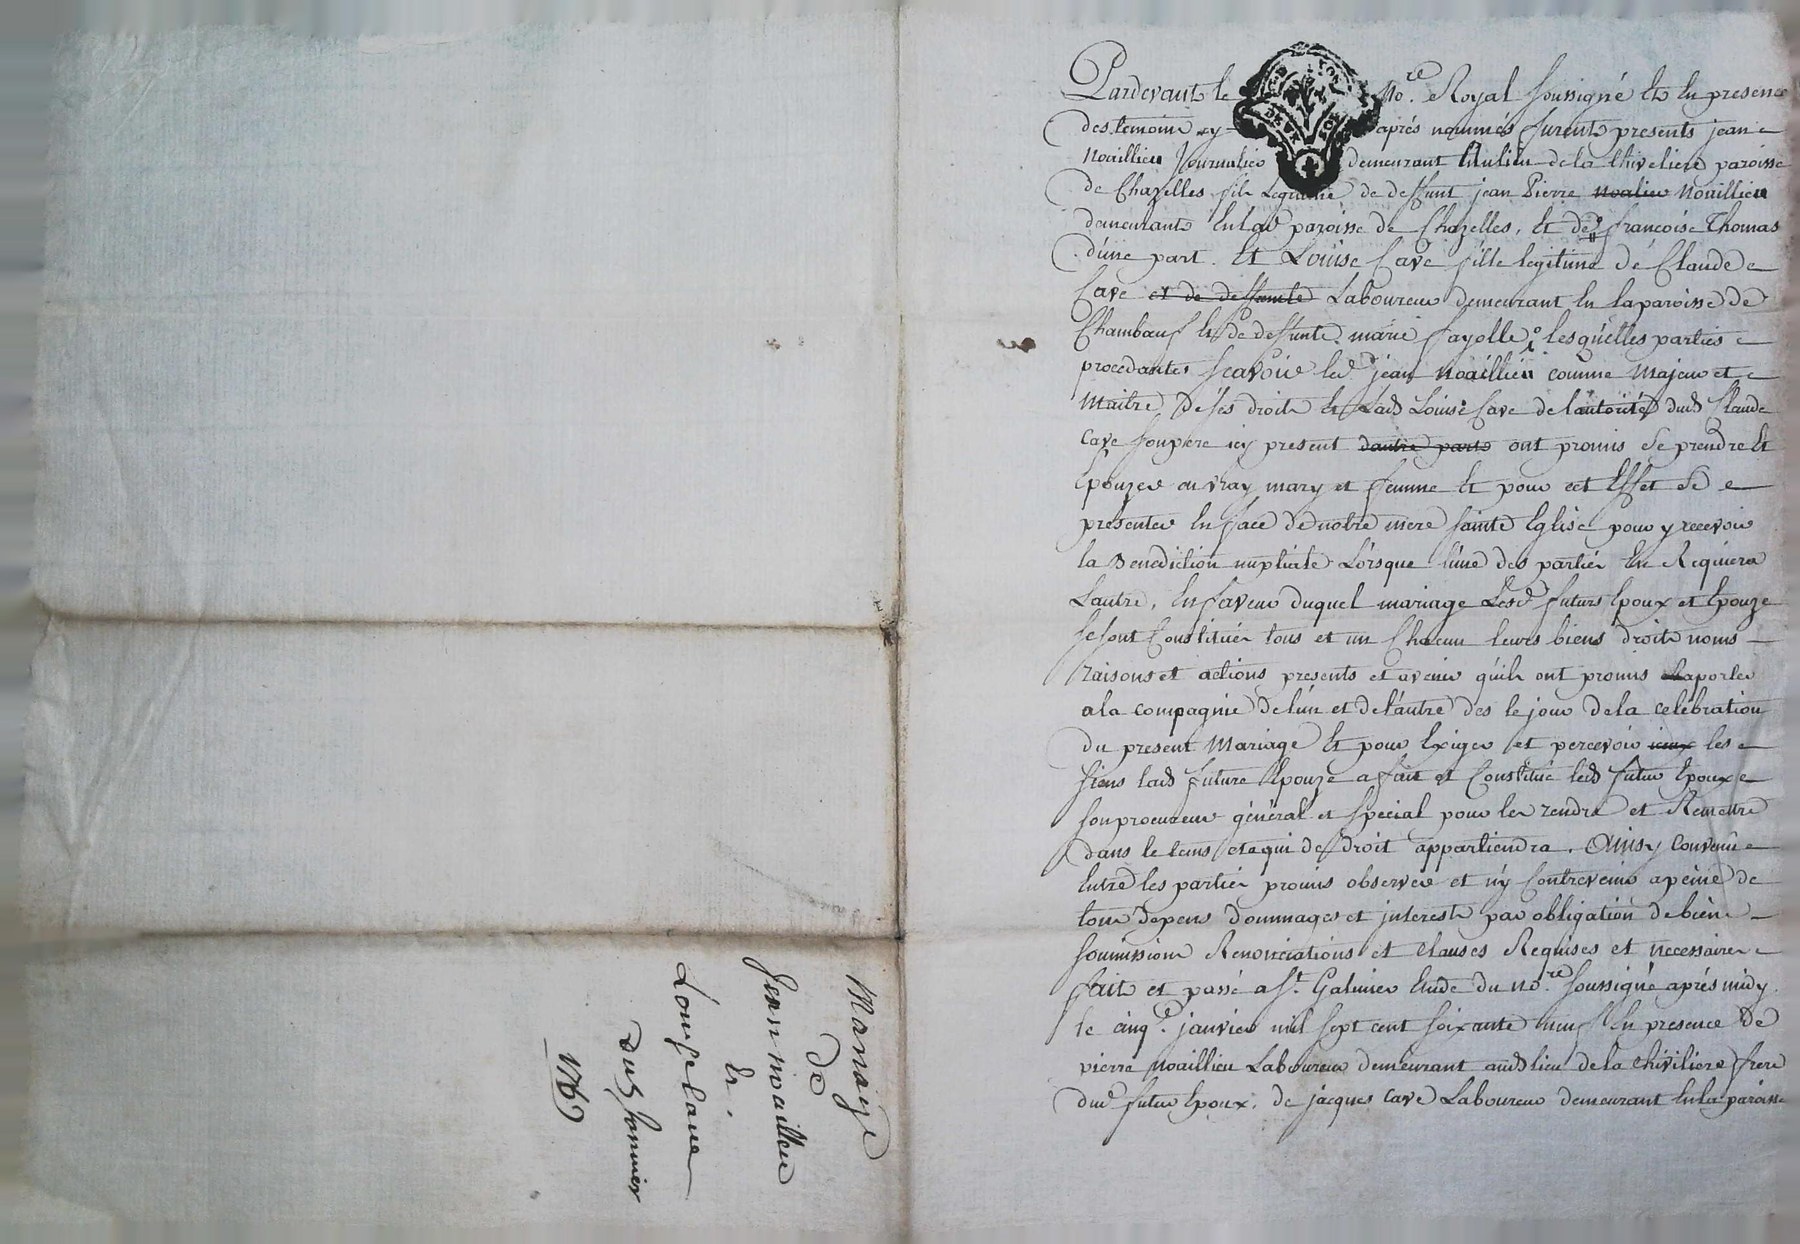 Pardevant le No.re Royal soussigné et en presence
des temoins cy aprés nommés furent presents jean
Noaillieu Journalier demeurant au lieu de la Chiveliere paroisse
de Chazelles fils legitime de deffunt jean Pierre noalieu Noaillieu
demeurants en lad paroisse de Chazelles, et de françoise Thomas
d'une part. Et Loüise Cave fille legitime de Claude
Cave et de deffunte Laboureur demeurant en la paroisse de
Chambœuf et de deffunte marie fayolle lesquelles parties
procedantes sçavoir led jean Noaillieu comme majeur et
Maitre de ses droits et Lad Loüise Cave de l'autorité dud Claude
Cave son pere icy present d'autre parts ont promis se prendre et
Epouzer en vray mary et femme et pour cet Effet se
presenter en face de notre mere sainte Eglise pour y recevoir
la Benediction nuptiale Lorsque l'une des parties en Requiera
L'autre, En faveur duquel mariage Lesd futurs Epoux et Epouze
se sont Constitués tous et un Chacun leurs biens droits noms
raisons et actions presents et avenir qu'ils ont promis aporter
a la compagnie de l'un et de l'autre des le jour de la celebration
du present Mariage Et pour Exiger et percevoir iceux les
siens lad future Epouze a fait et Constitué led futur Epoux
son procureur général et special pour les rendre et Remettre
dans le tems et a qui de droit appartiendra. Ainsy convenu
Entre les parties promis observer et n'y Contrevenir a peine de
tous depens dommages et interests par obligation de biens
soumissions Renonciations et clauses Requises et necessaires
fait et passé a St. Galmier Etude du no.re soussigné aprés midy
le cinq.e janvier mil sept cent soixante neuf En presence de
pierre Noaillieu Laboureur demeurant aud lieu de la Chiviliere frere
dud futur Epoux, de jacques Cave Laboureur demeurant en la paroisse
Mariage
de
Jean noaillieu
Et
Louise Cave
1769